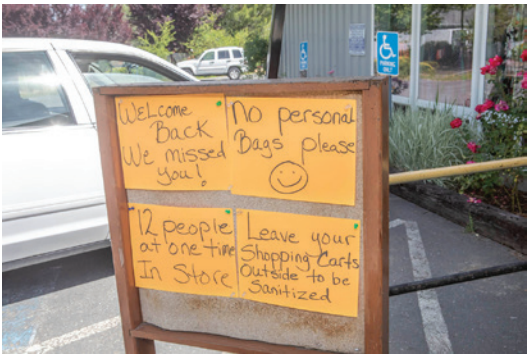 Welcome
Back
We missed
you!
No personal
Bags please
12 people
at one time
In Store
Leave your
Shopping Carts
Outside to be
Sanitized
PARKING
ONLY